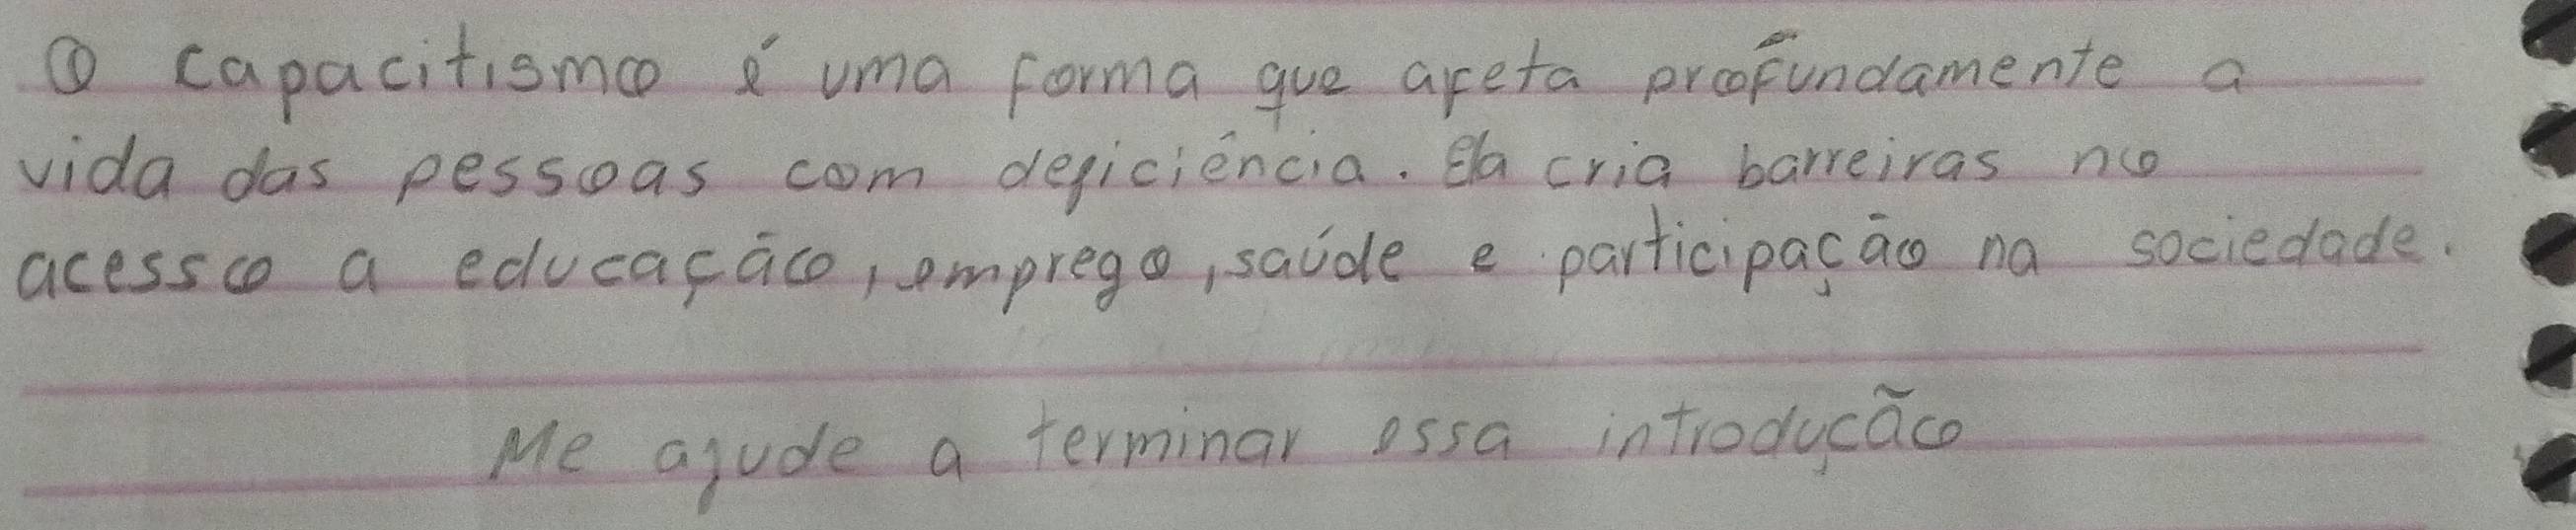 O capacitismo é uma forma que afeta profundamente a
vida das pessoas com deficiência. Ela cria barreiras no
acesso a educação, emprego, saúde e participação na sociedade.
Me ajude a terminar essa introdução